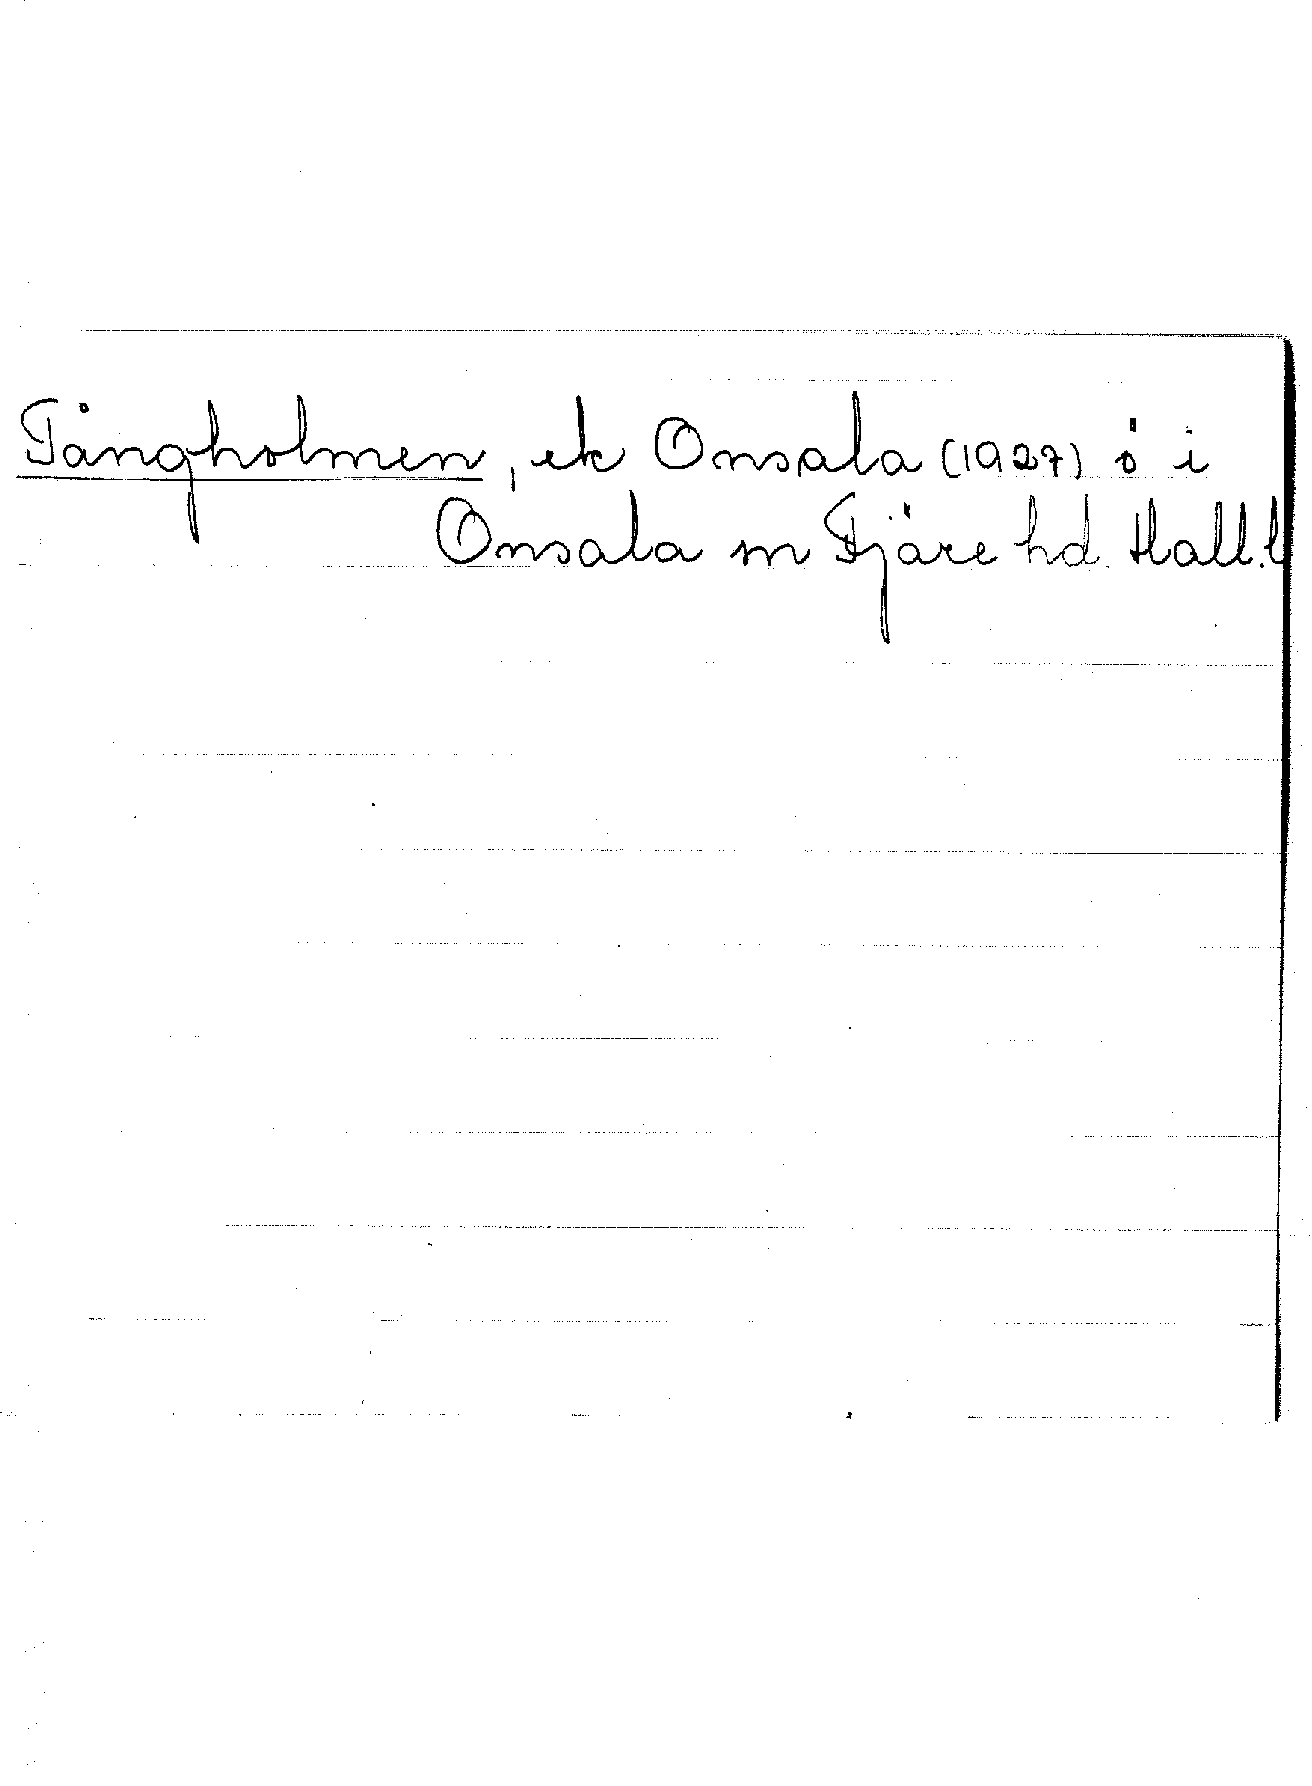 Tångholmen, ek Onsala (1927) ö i
Onsala sn Fjäre hd Hall. l